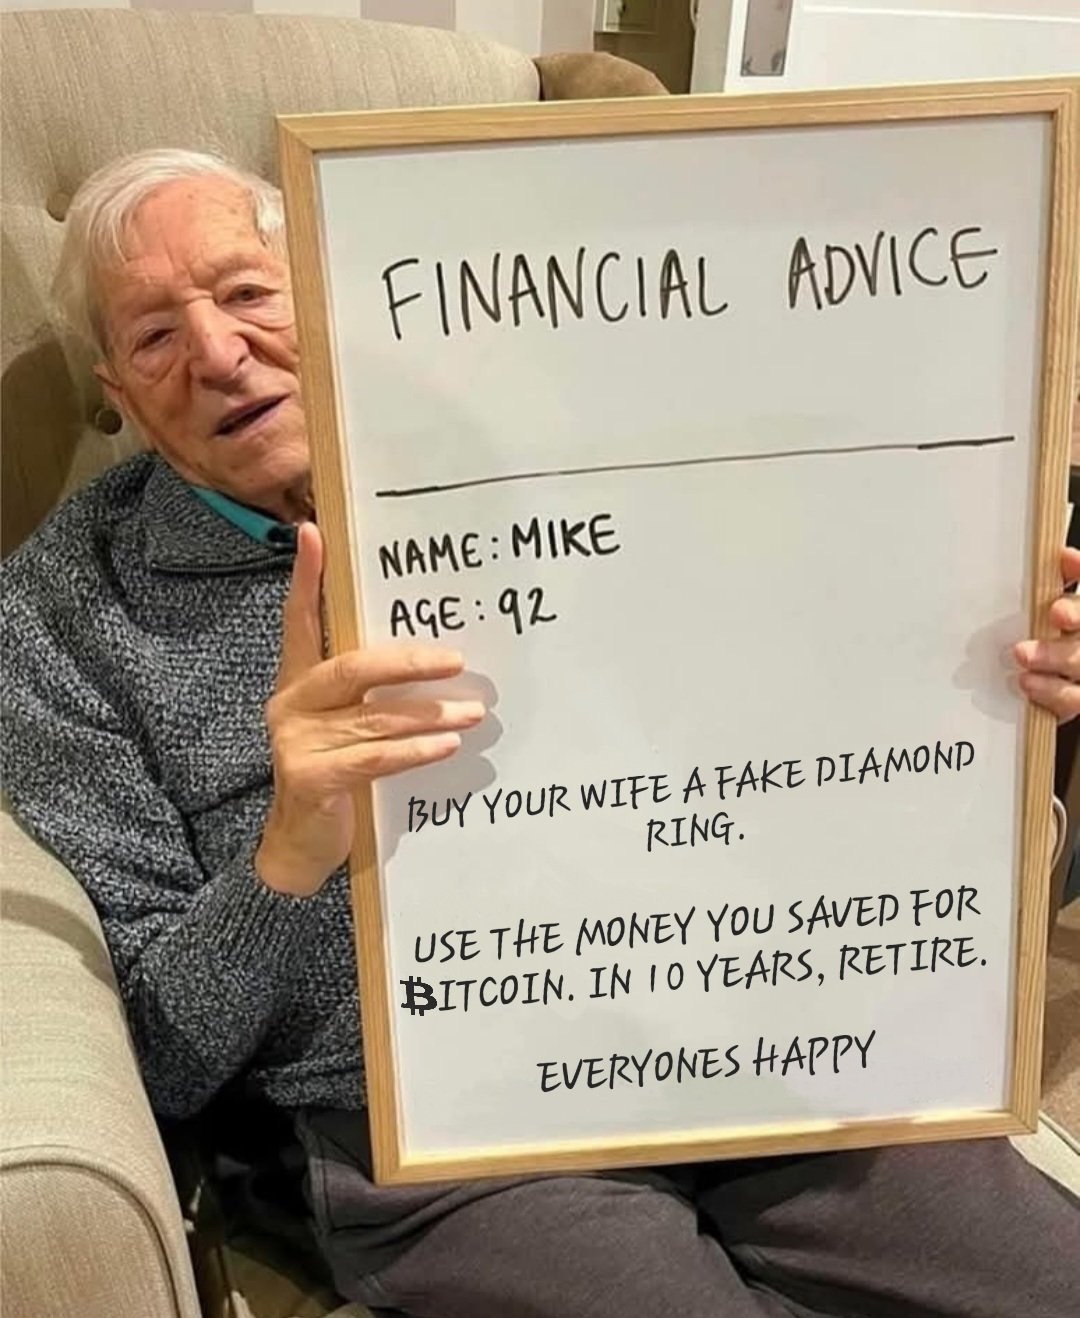 FINANCIAL ADVICE
NAME: MIKE
AGE: 92
BUY YOUR WIFE A FAKE DIAMOND
RING.
USE THE MONEY YOU SAVED FOR
₿ITCOIN. IN 10 YEARS, RETIRE.
EVERYONES HAPPY